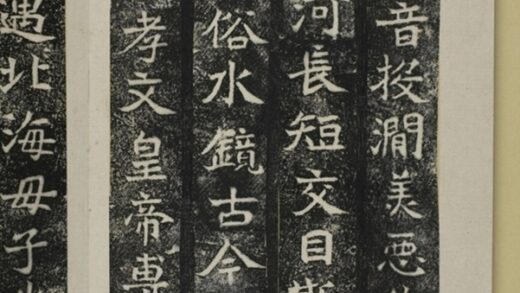 音投澗美惡
河長短交目
俗水鏡古今
孝文皇帝專
遇北海母子